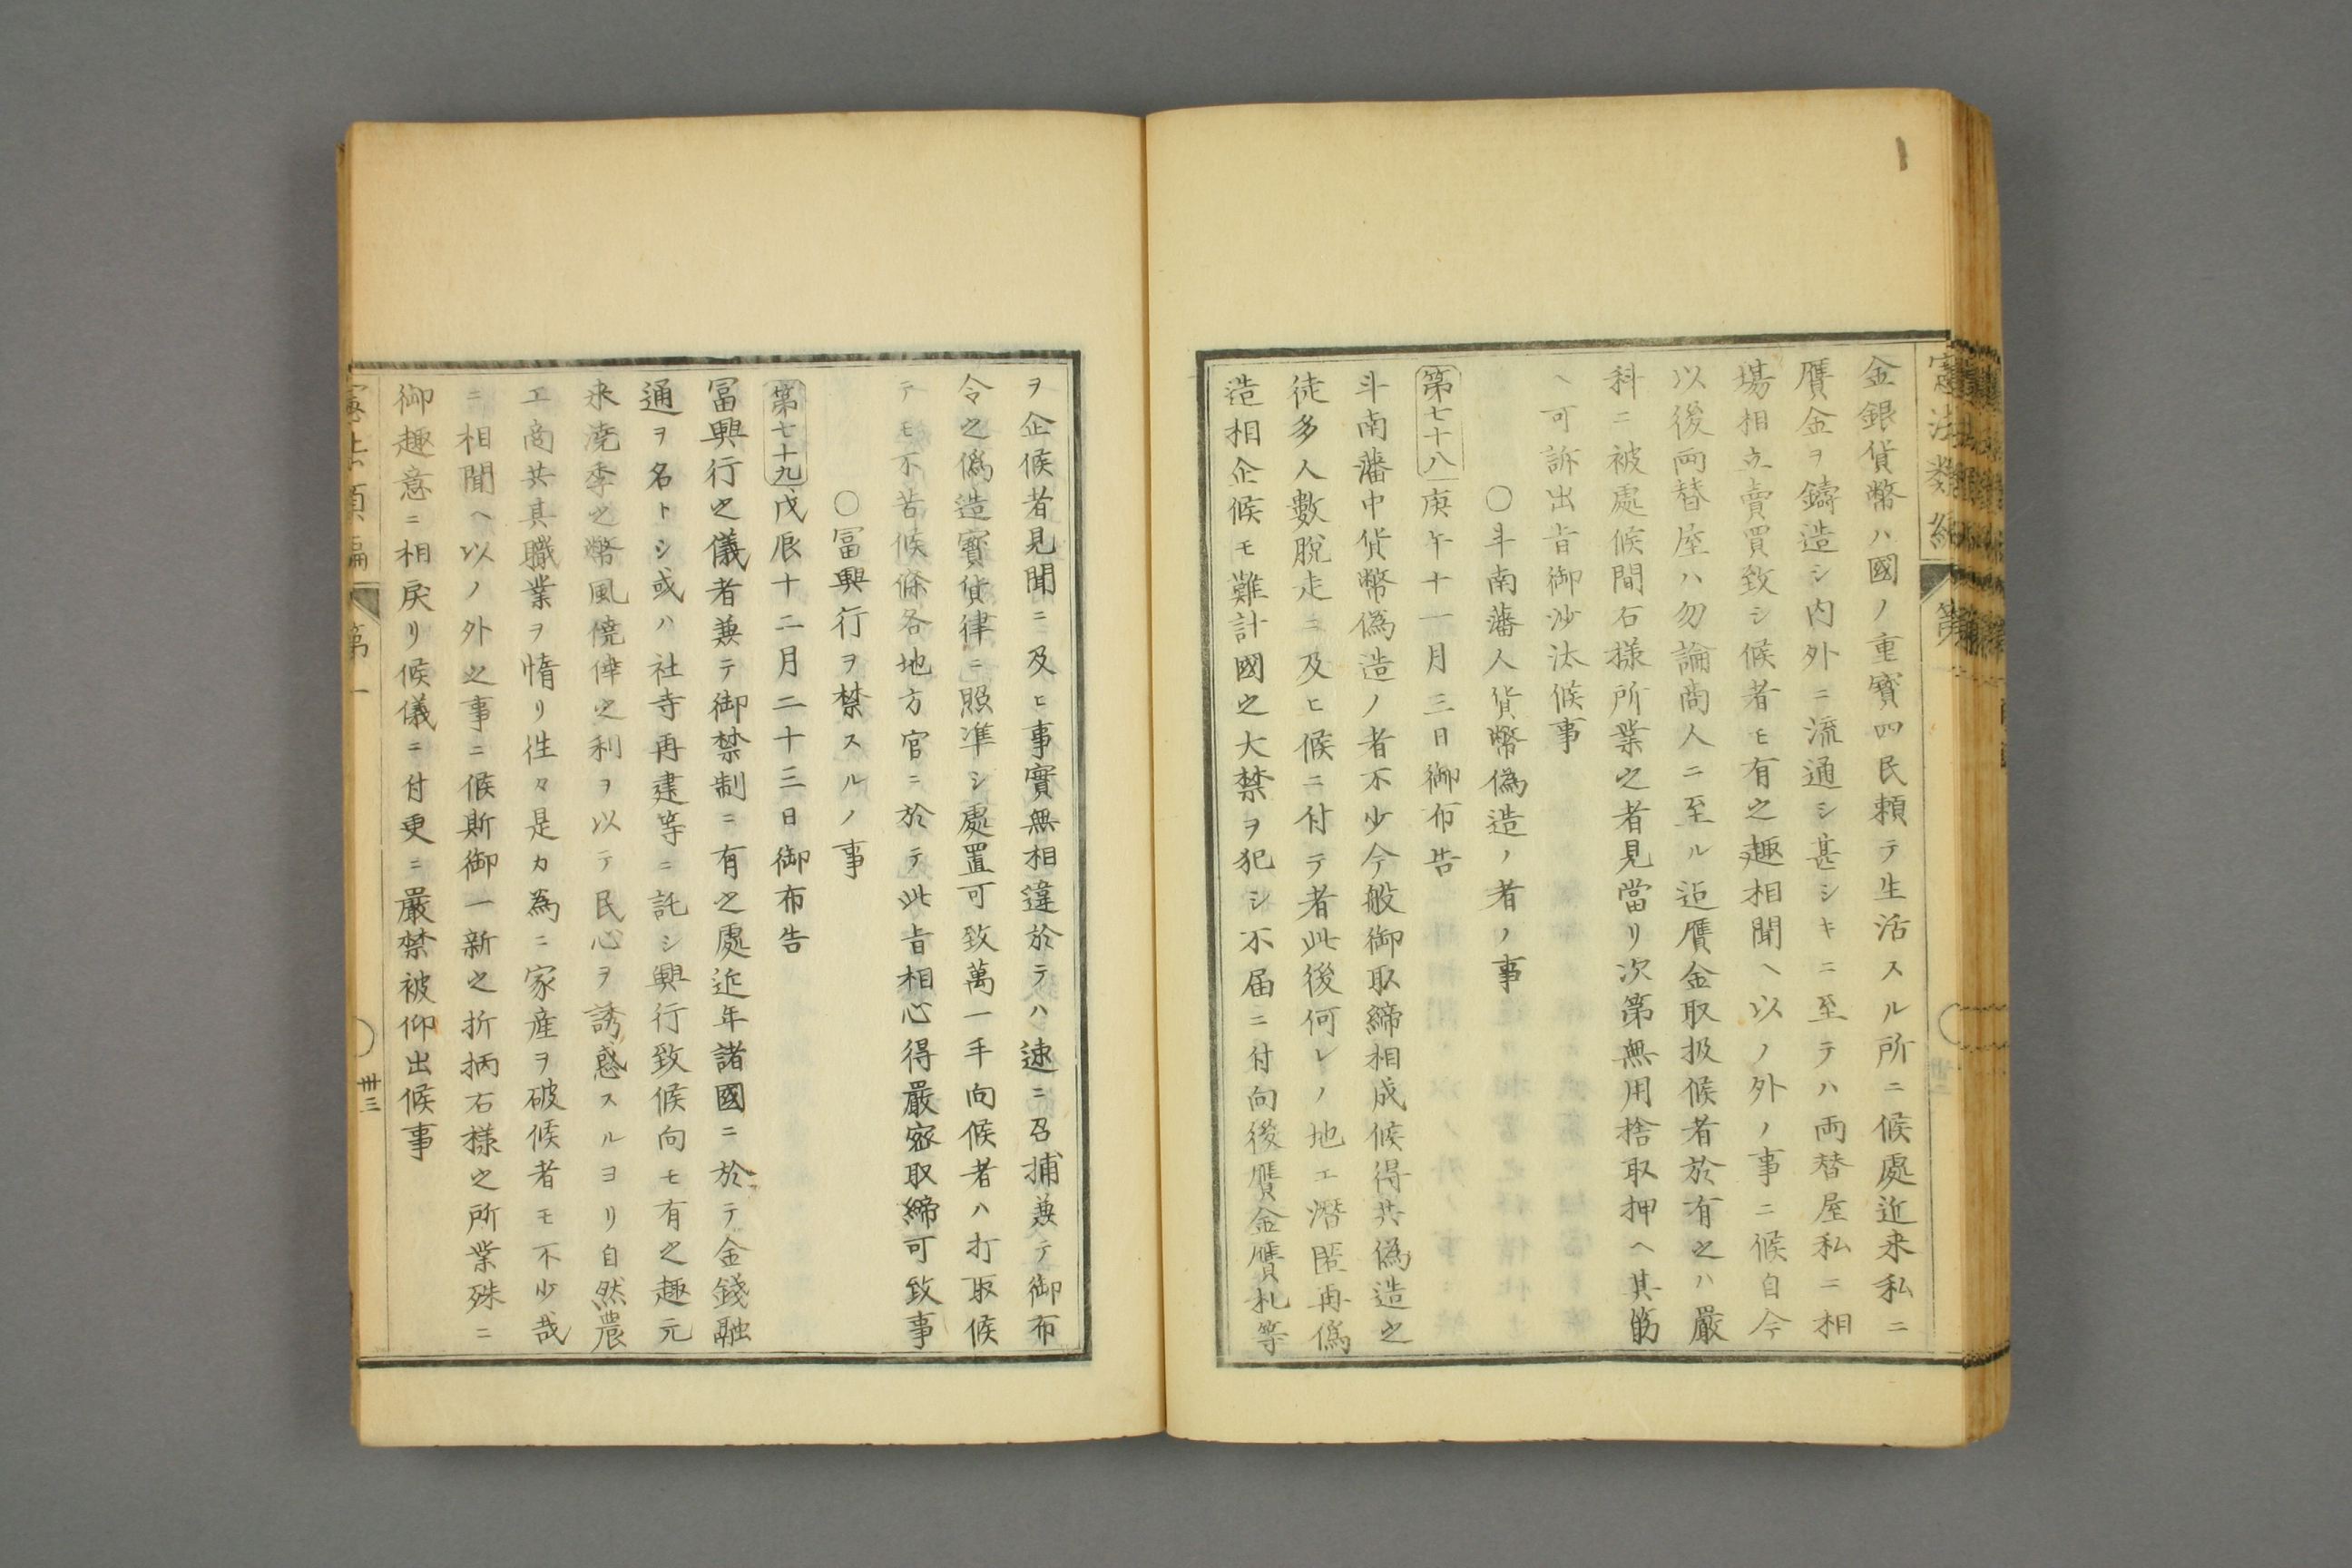 金銀貨幣ハ國ノ重寳四民頼テ生活スル所ニ候處近来私ニ
贋金ヲ鑄造シ内外ニ流通シ甚シキニ至テハ両替屋私ニ相
塲相立賣買致シ候者モ有之趣相聞ヘ以ノ外ノ事ニ候自今
以後両替屋ハ勿論商人ニ至ル迠贋金取扱候者於有之ハ嚴
科ニ被處候間右様所業之者見當リ次第無用捨取押ヘ其筋
ヘ可訴出旨御沙汰候事
〇斗南藩人貨幣偽造ノ者ノ事
第七十八 庚午十一月三日御布告
斗南藩中貨幣偽造ノ者不少今般御取締相成候得共偽造之
徒多人數脱走ニ及ヒ候ニ付テ者此後何レノ地エ潜匿再偽
造相企候モ難計國之大禁ヲ犯シ不届ニ付向後贋金贋札等
ヲ企候者見聞ニ及ヒ事實無相違於テハ速ニ召捕兼テ御布
令之偽造寳貨律ニ照準シ處置可致萬一手向候者ハ打取候
テモ不苦候條各地方官ニ於テ此旨相心得嚴密取締可致事
〇冨興行ヲ禁スルノ事
第七十九 戊辰十二月二十三日御布告
冨興行之儀者兼テ御禁制ニ有之處近年諸國ニ於テ金錢融
通ヲ名トシ或ハ社寺再建等ニ託シ興行致候向モ有之趣元
来澆季之幣風僥倖之利ヲ以テ民心ヲ誘惑スルヨリ自然農
工商共其職業ヲ惰リ徃々是カ為ニ家産ヲ破候者モ不少哉
ニ相聞ヘ以ノ外之事ニ候斯御一新之折柄右様之所業殊ニ
御趣意ニ相戻リ候儀ニ付更ニ嚴禁被仰出候事
憲法類編 第一
卅三